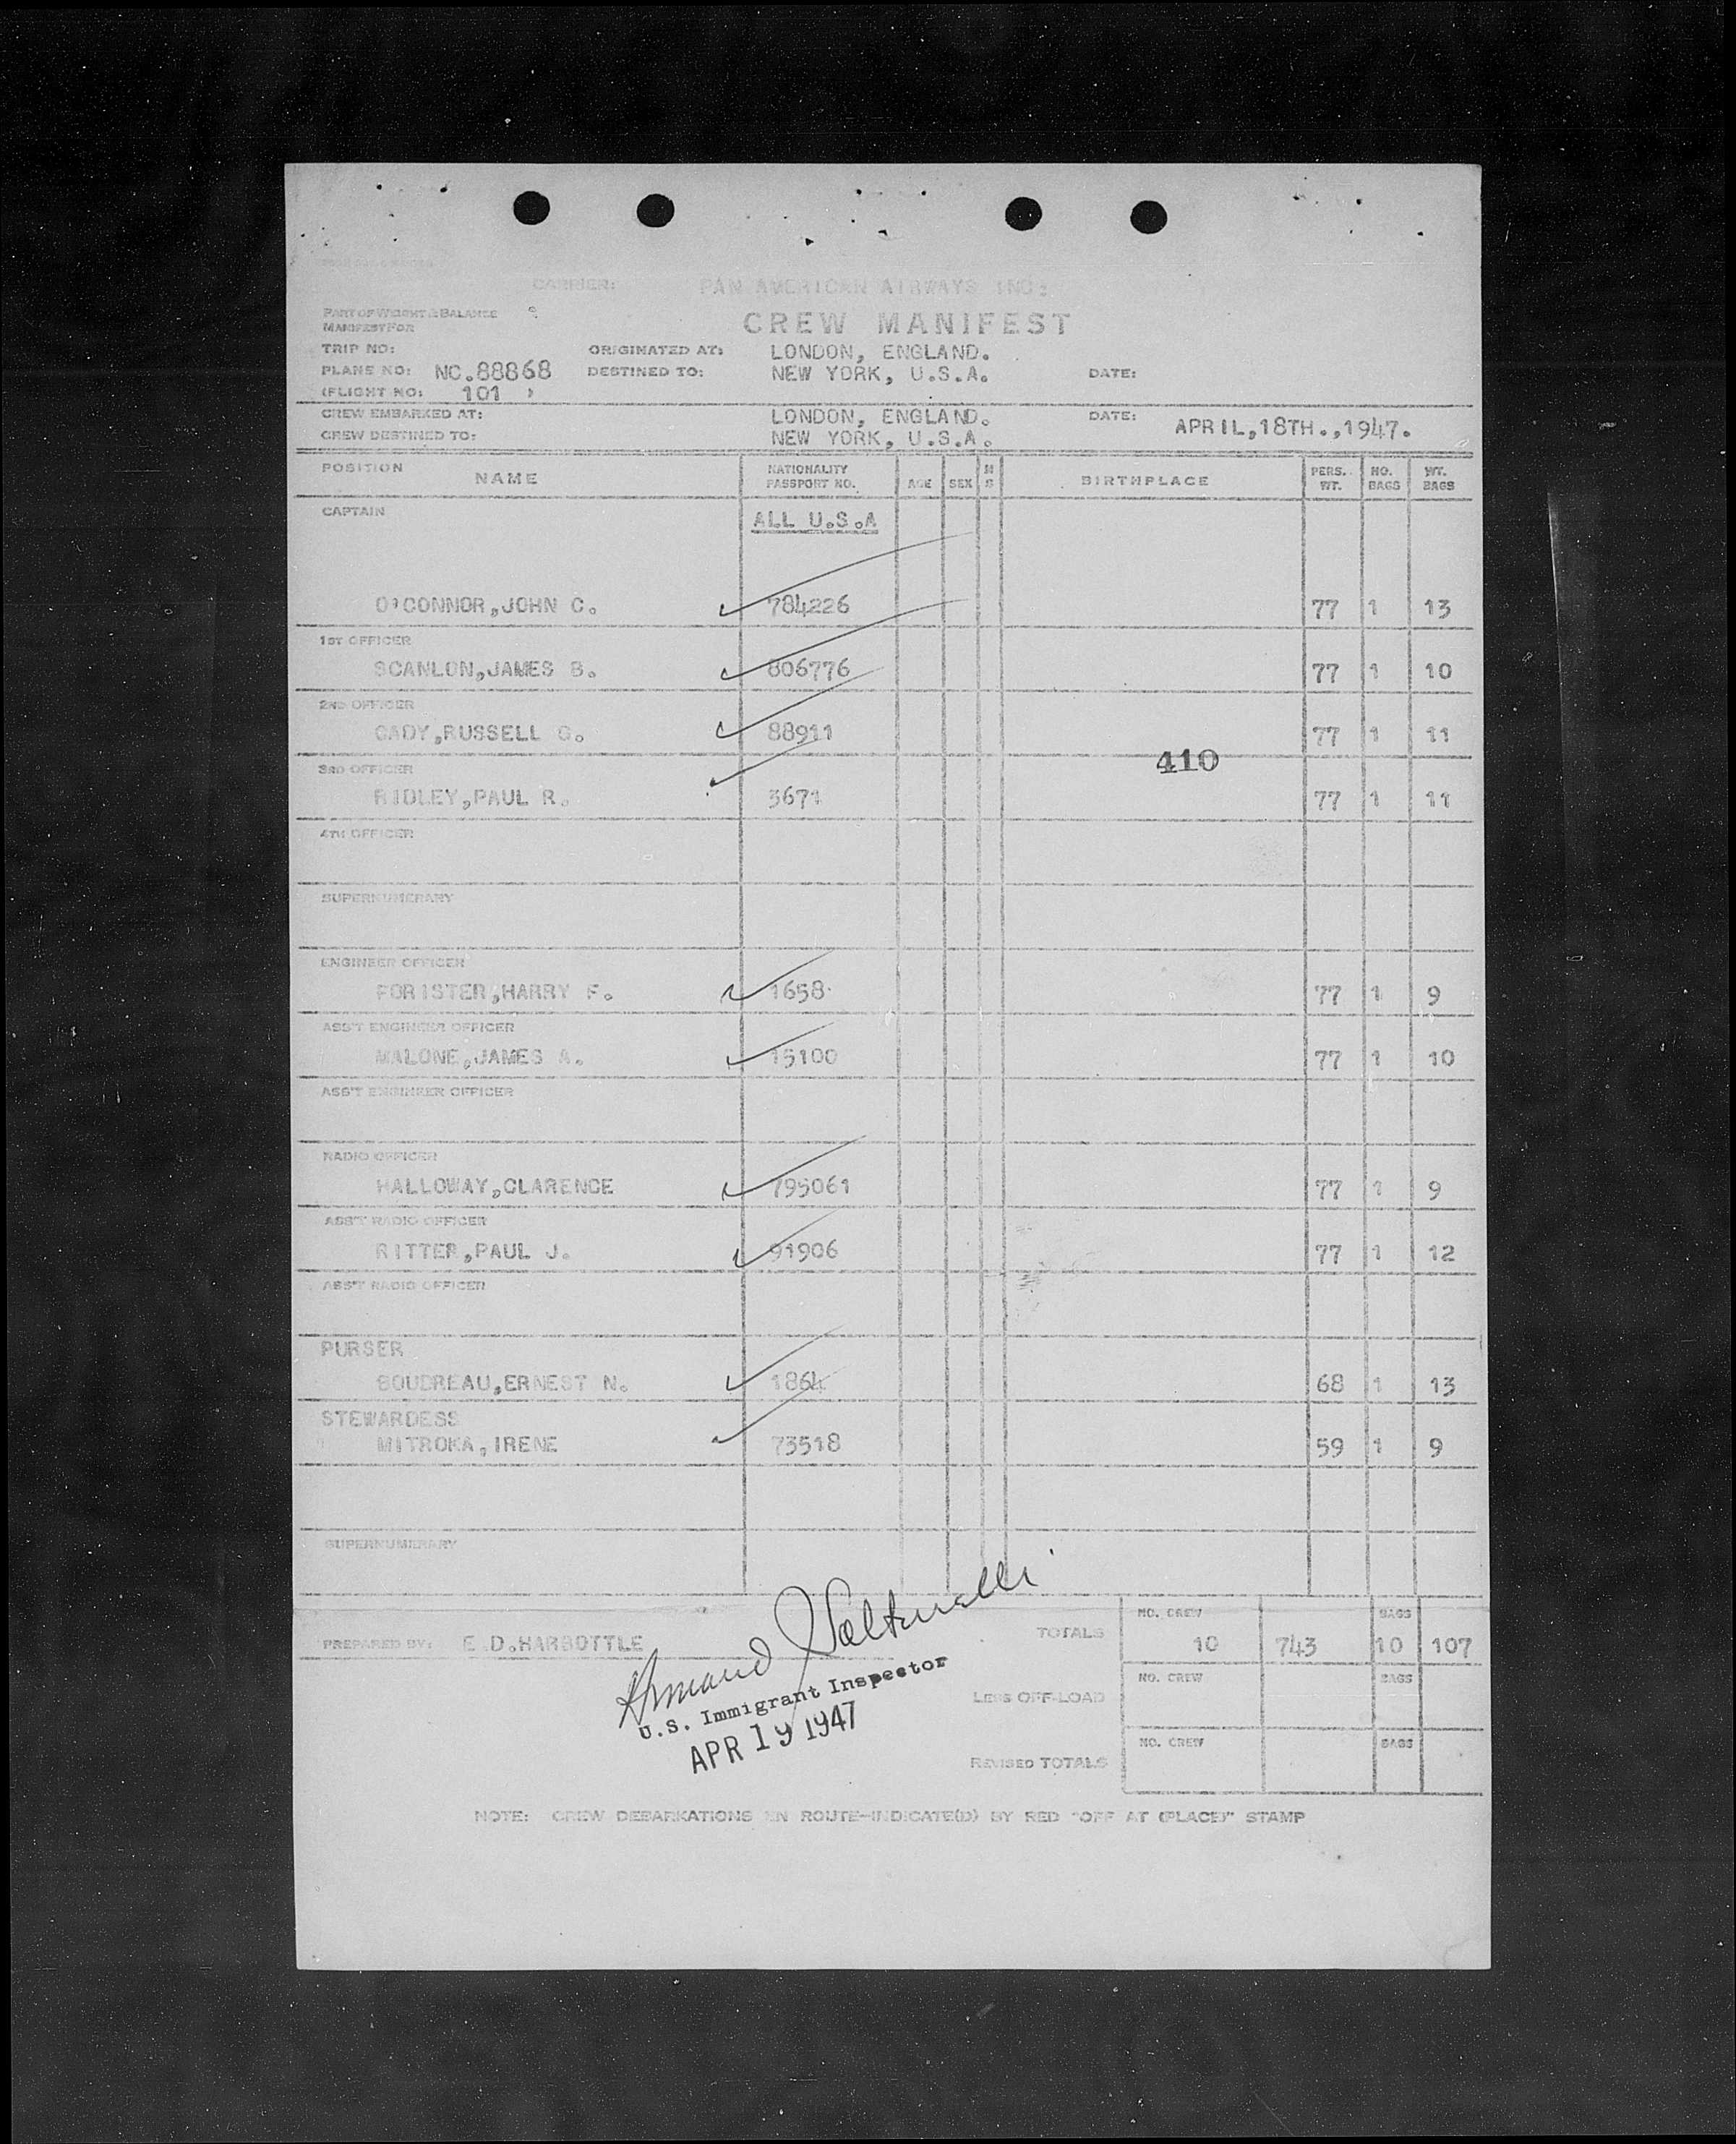 CARRIER: PAN AMERICAN AIRWAYS INC.
PART OF WEIGHT & BALANCE
MANIFEST FOR
CREW MANIFEST
TRIP NO: ORIGINATED AT: LONDON, ENGLAND.
PLANE NO: NC.88868 DESTINED TO: NEW YORK, U.S.A. DATE:
(FLIGHT NO: 101 )
CREW EMBARKED AT: LONDON, ENGLAND. DATE: APRIL,18TH.,1947.
CREW DESTINED TO: NEW YORK, U.S.A.
POSITION NAME NATIONALITY PASSPORT NO. AGE SEX M S BIRTHPLACE PERS. WT. NO. BAGS WT. BAGS
CAPTAIN ALL U.S.A
O'CONNOR,JOHN C. 784226 77 1 13
1ST OFFICER
SCANLON,JAMES B. 806776 77 1 10
2ND OFFICER
CADY,RUSSELL G. 88911 77 1 11
410
3RD OFFICER
RIDLEY,PAUL R. 3671 77 1 11
4TH OFFICER
SUPERNUMERARY
ENGINEER OFFICER
FORISTER,HARRY F. 1658 77 1 9
ASS'T ENGINEER OFFICER
MALONE,JAMES A. 15100 77 1 10
ASS'T ENGINEER OFFICER
RADIO OFFICER
HALLOWAY,CLARENCE 795061 77 1 9
ASS'T RADIO OFFICER
RITTER,PAUL J. 91906 77 1 12
ASS'T RADIO OFFICER
PURSER
BOUDREAU,ERNEST N. 1864 68 1 13
STEWARDESS
MITROKA,IRENE 73518 59 1 9
SUPERNUMERARY
PREPARED BY: E.D.HARBOTTLE
TOTALS NO. CREW 10 743 BAGS 10 107
Armand
U.S. Immigrant Inspector
APR 19 1947
LESS OFF-LOAD NO. CREW BAGS
REVISED TOTALS NO. CREW BAGS
NOTE: CREW DEBARKATIONS EN ROUTE-INDICATE(D) BY RED "OFF AT (PLACE)" STAMP